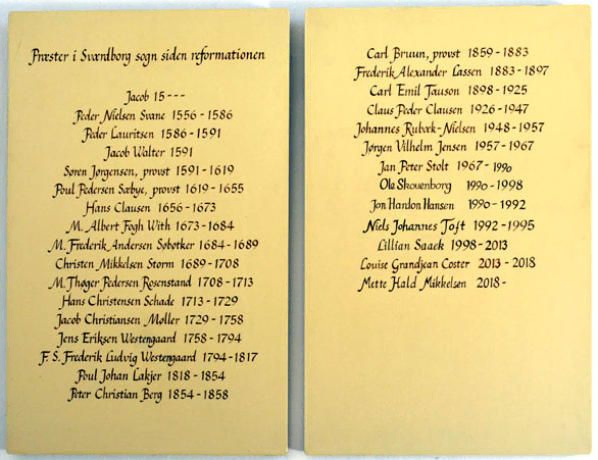 Præster i Sværdborg sogn siden reformationen
Jacob 15---
Peder Nielsen Svane 1556-1586
Peder Lauritsen 1586-1591
Jacob Walter 1591
Søren Jørgensen, provst 1591-1619
Poul Pedersen Sæbye, provst 1619-1655
Hans Clausen 1656-1673
M. Albert Fogh With 1673-1684
M. Frederik Andersen Søbotker 1684-1689
Christen Mikkelsen Storm 1689-1708
M. Thøger Pedersen Rosenstand 1708-1713
Hans Christensen Schade 1713-1729
Jacob Christiansen Møller 1729-1758
Jens Eriksen Westengaard 1758-1794
F. S. Frederik Ludvig Westengaard 1794-1817
Poul Johan Lakjer 1818-1854
Peter Christian Berg 1854-1858
Carl Bruun, provst 1859-1883
Frederik Alexander Lassen 1883-1897
Carl Emil Tauson 1898-1925
Claus Peder Clausen 1926-1947
Johannes Rubæk-Nielsen 1948-1957
Jørgen Vilhelm Jensen 1957-1967
Jan Peter Stolt 1967-1990
Ole Skouenborg 1990-1998
Jon Hardon Hansen 1990-1992
Niels Johannes Toft 1992-1995
Lillian Saaek 1998-2013
Louise Grandjean Coster 2013-2018
Mette Hald Mikkelsen 2018-